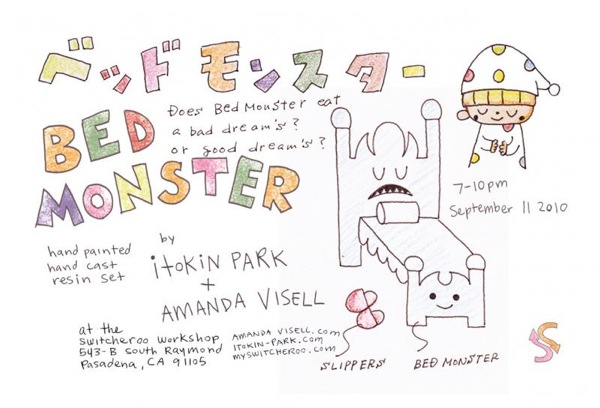 ベッド モンスター
BED
MONSTER
Does Bed Monster eat
a bad dream's?
or good dream's?
7-10pm
September 11 2010
hand painted
hand cast
resin set
by
itokin PARK
+
AMANDA VISELL
at the
Switcheroo Workshop
543-B South Raymond
Pasadena, CA 91105
AMANDA VISELL.com
ITOKIN-PARK.com
MYSWITCHEROO.com
SLIPPERS
BED MONSTER